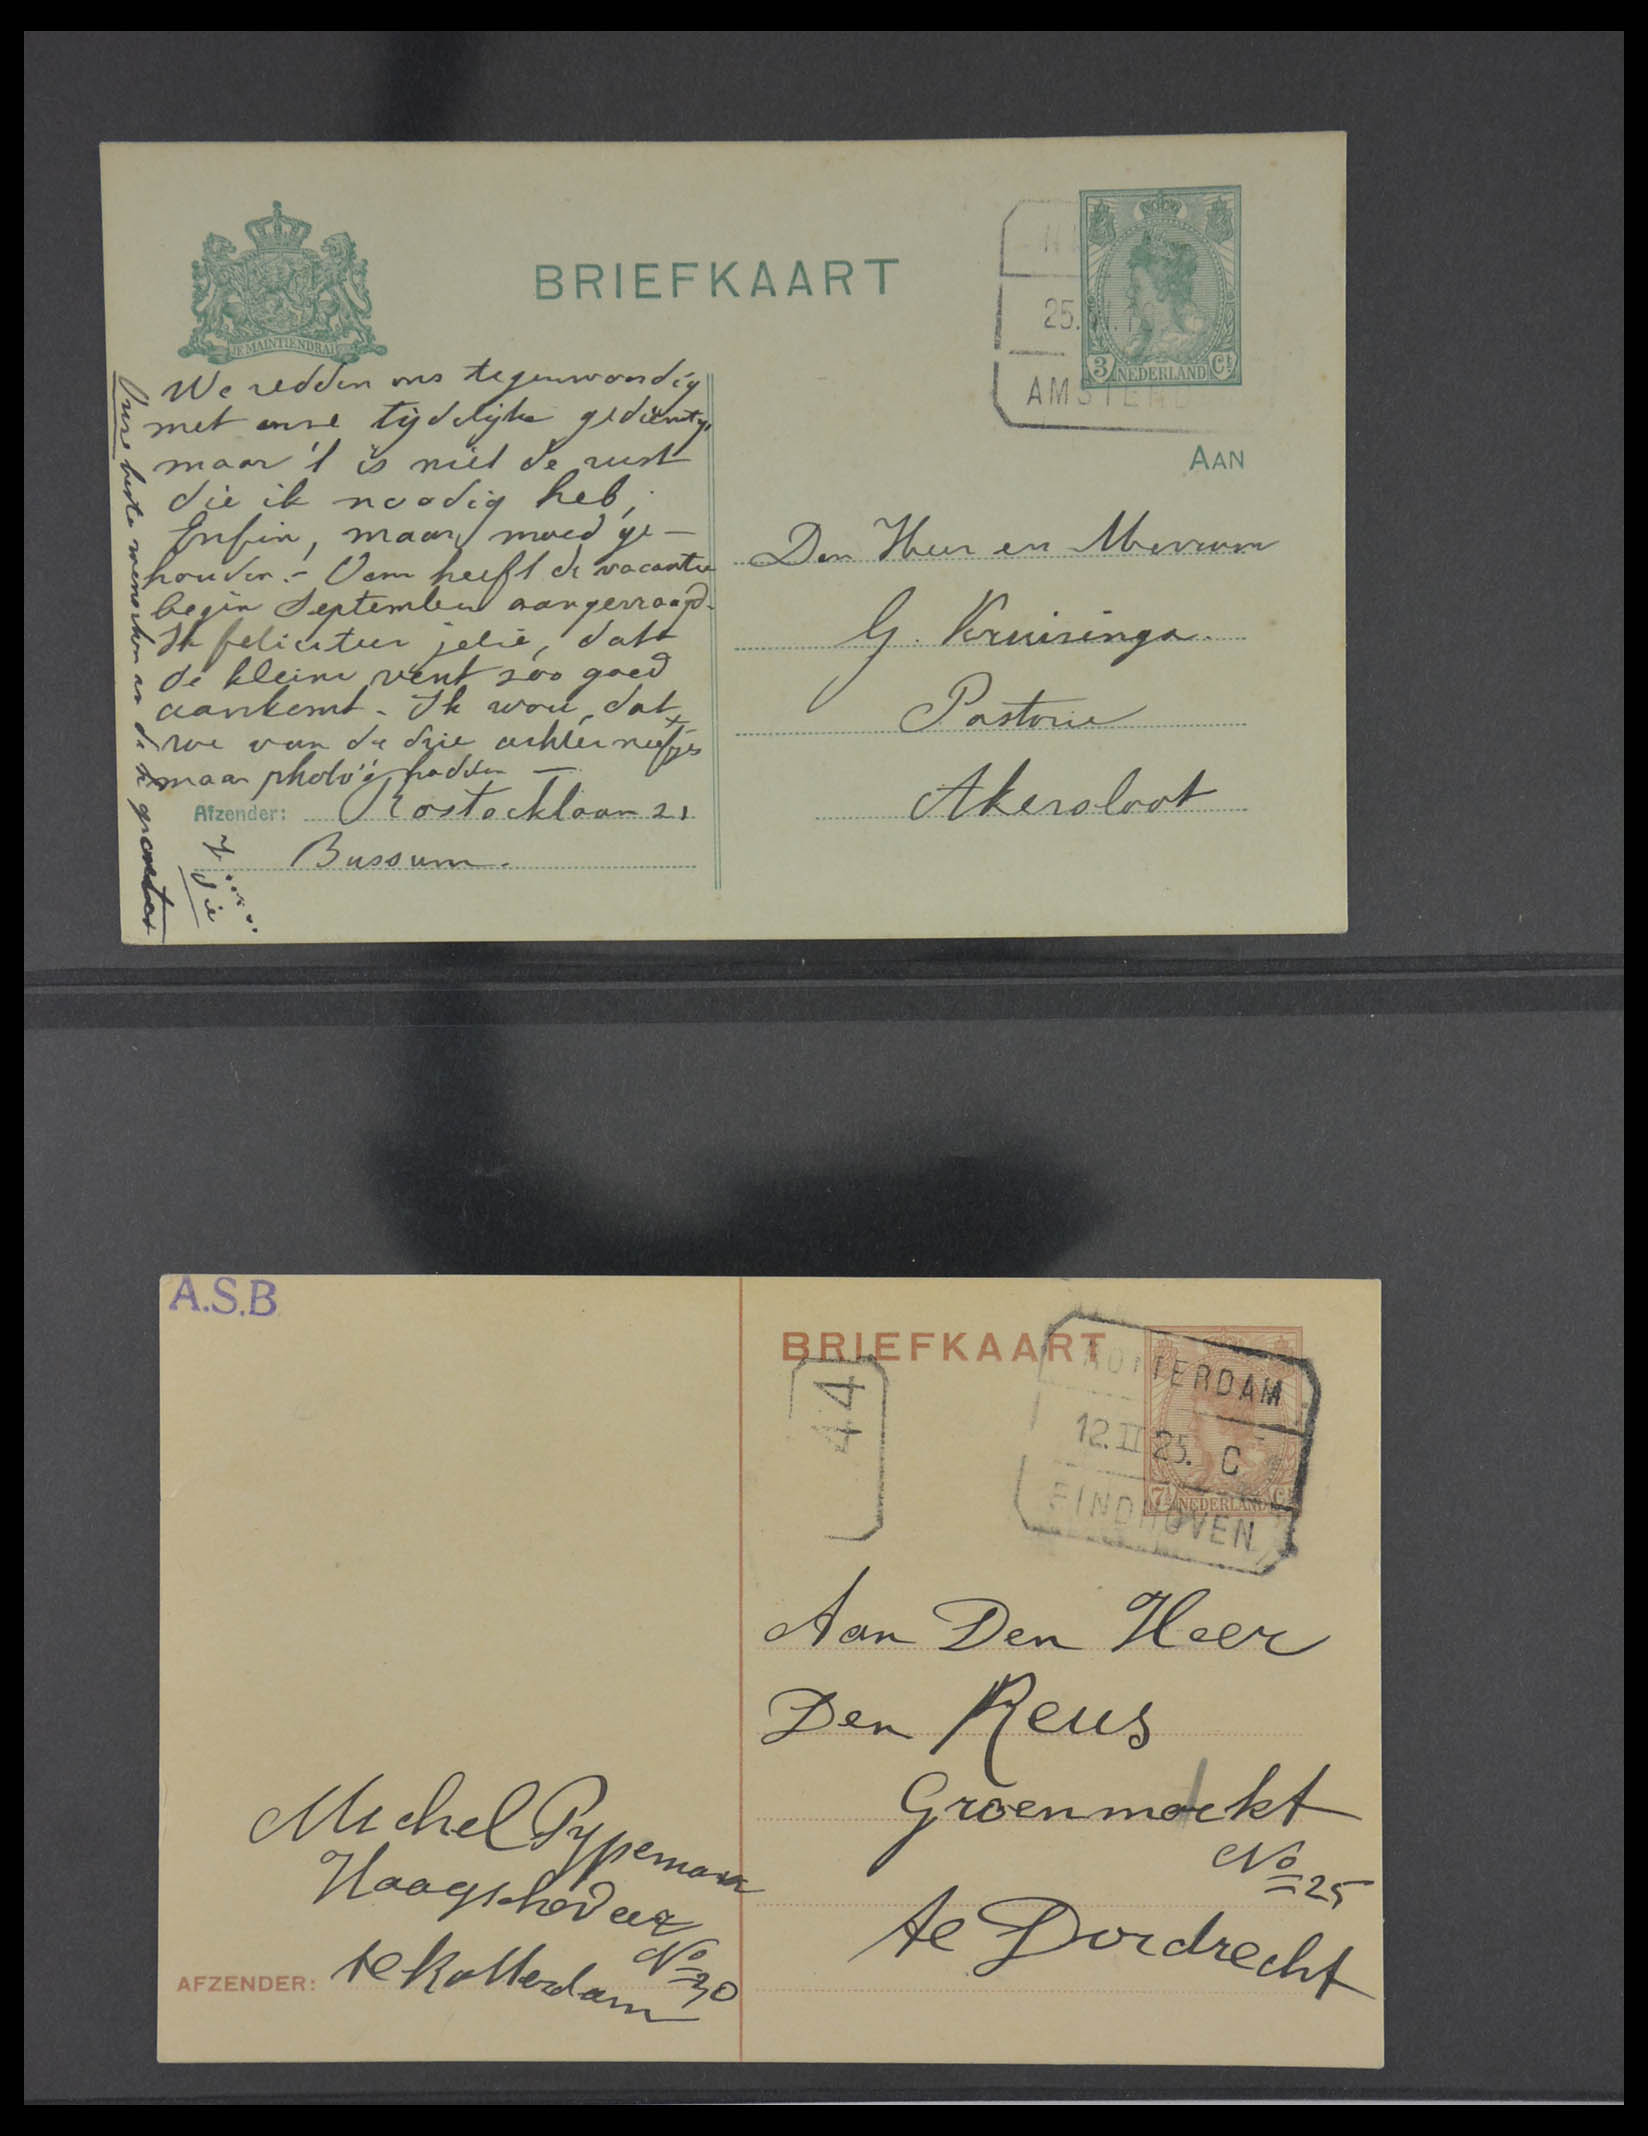 JE MAINTIENDRAI
BRIEFKAART
25.
AMSTERD
3 NEDERLAND Ct
AAN
We redden ons tegenwoordig
met onze tijdelijke gedienstige
maar 't is niet de rust
die ik noodig heb,
Enfin, maar moed ge-
houden. - Oom heeft de vacantie
begin September aangevraagd.
Ik feliciteer jelie, dat
de kleine vent zoo goed
aankomt. Ik wou, dat
we van de drie achterneefjes
maar photo's hadden —
Afzender: Rostocklaan 21
Bussum.
Onze beste menschen en de groeten
Den Heer en Mevrouw
G. Kruisinga.
Pastorie
Akersloot
A.S.B
BRIEFKAART
44
ROTTERDAM
12.II 25. C
EINDHOVEN
7½ NEDERLAND Ct
Aan Den Heer
Den Reus
Groenmarkt
No 25
te Dordrecht
Michel Pypeman
Haagscheveer
No 30
AFZENDER: te Rotterdam